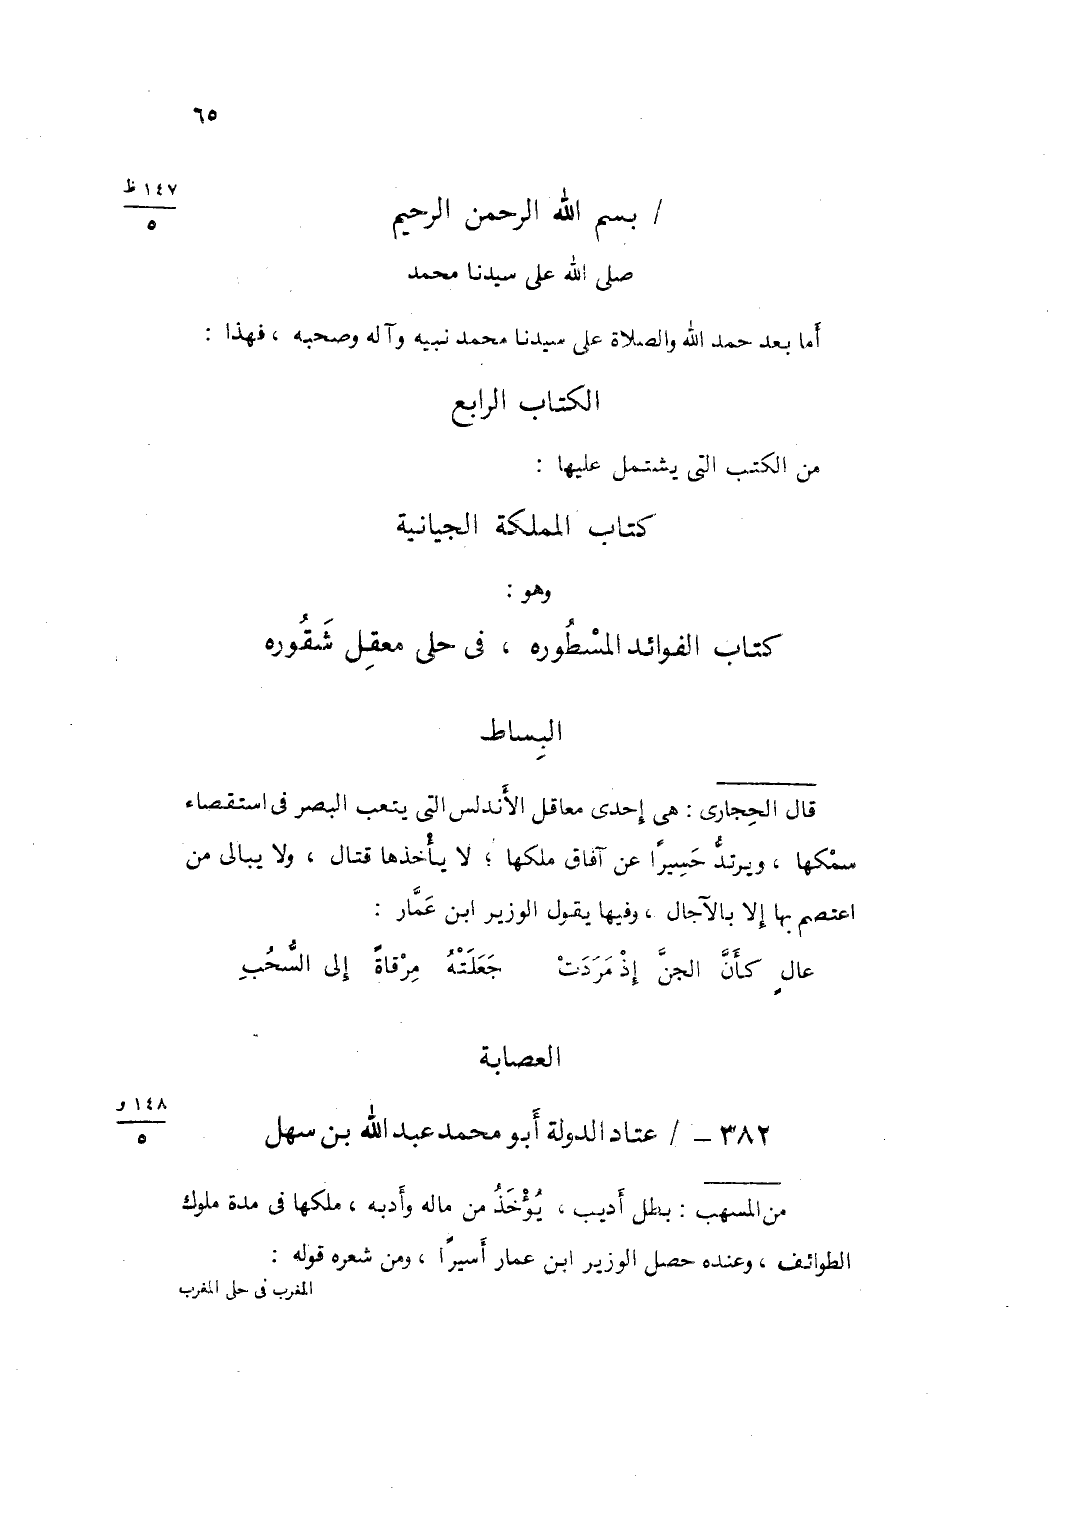 ٦٥
١٤٧ ظ
٥
/ بسم الله الرحمن الرحيم
صلى الله على سيدنا محمد
أما بعد حمد الله والصلاة على سيدنا محمد نبيه وآله وصحبه ، فهذا :
الكتاب الرابع
من الكتب التى يشتمل عليها :
كتاب المملكة الجيانية
وهو :
كتاب الفوائد المسْطُوره ، فى حلى معقِل شَقُوره
البِساط
قال الحِجارى : هى إحدى معاقل الأَندلس التى يتعب البصر فى استقصاء
سمْكها ، ويرتدُّ حَسِيرًا عن آفاق ملكها ؛ لا يأْخذها قتال ، ولا يبالى من
اعتصم بها إلا بالآجال ، وفيها يقول الوزير ابن عَمَّار :
عالٍ كأَنَّ الجنَّ إذْ مَرَدَتْ جَعَلَتْهُ مِرْقاةً إلى السُّحُبِ
العصابة
١٤٨ و
٥
٣٨٢ – / عتاد الدولة أَبو محمد عبد الله بن سهل
من المسهب : بطل أَديب ، يُؤْخَذُ من ماله وأَدبه ، ملكها فى مدة ملوك
الطوائف ، وعنده حصل الوزير ابن عمار أَسيرًا ، ومن شعره قوله :
المغرب فى حلى المغرب